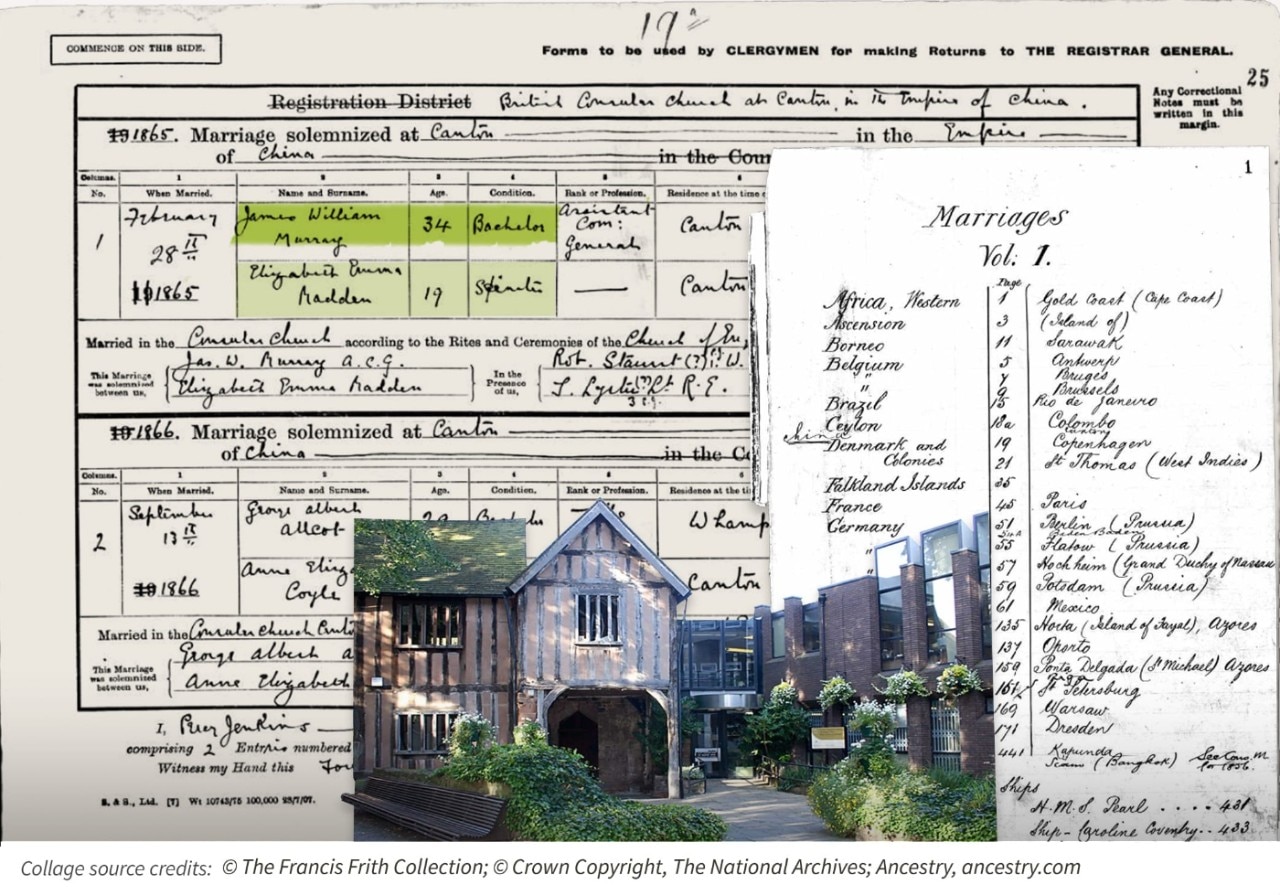 19a
COMMENCE ON THIS SIDE.
Forms to be used by CLERGYMEN for making Returns to THE REGISTRAR GENERAL.
25
Registration District British Consular Church at Canton, in the Empire of China.
Any Correctional
Notes must be
written in this
margin.
19 1865. Marriage solemnized at Canton in the Empire
of China in the Cou
Columns. 1 2 3 4 5 6
No. When Married. Name and Surname. Age. Condition. Rank or Profession. Residence at the time
1 February James William Murray 34 Bachelor Assistant Com: General Canton
28th
19 1865 Elizabeth Emma Madden 19 Spinster — Canton
Married in the Consular Church according to the Rites and Ceremonies of the Church of En
This Marriage was solemnized between us, Jas. W. Murray A.C.G. In the Presence of us, Robt. Staunt (?) W.
Elizabeth Emma Madden R.E.
19 1866. Marriage solemnized at Canton
of China in the Co
Columns. 1 2 3 4 5 6
No. When Married. Name and Surname. Age. Condition. Rank or Profession. Residence at the ti
2 September George Albert Allcot Whamp
13th
19 1866 Anne Eliza Coyle Canton
Married in the Consular Church Canto
This Marriage was solemnized between us, George Albert A
Anne Elizabeth
I, Jenkins
comprising 2 Entries numbered
Witness my Hand this
S. & S., Ltd. [7] Wt 10743/75 100,000 23/7/07.
1
Marriages
Vol: 1.
Page
Africa, Western 1 Gold Coast (Cape Coast)
Ascension 3 (Island of)
Borneo 11 Sarawak
Belgium 5 Antwerp
" 7 Bruges
9 Brussels
Brazil 15 Rio de Janeiro
Ceylon 18a Colombo
China Canton
Denmark and 19 Copenhagen
Colonies 21 St Thomas (West Indies)
Falkland Islands 35
France 45 Paris
Germany 51 Berlin (Prussia)
Baden Baden
" 55 Flatow (Prussia)
" 57 Hochheim (Grand Duchy of Nassau
59 Potsdam (Prussia)
61 Mexico
135 Horta (Island of Fayal), Azores
137 Oporto
159 Ponta Delgada (St Michael) Azores
St Petersburg
169 Warsaw
171 Dresden
441 Kapunda
Siam (Bangkok)
Ships
H.M.S. Pearl .... 431
Ship - Caroline Coventry.. 433
Collage source credits: © The Francis Frith Collection; © Crown Copyright, The National Archives; Ancestry, ancestry.com